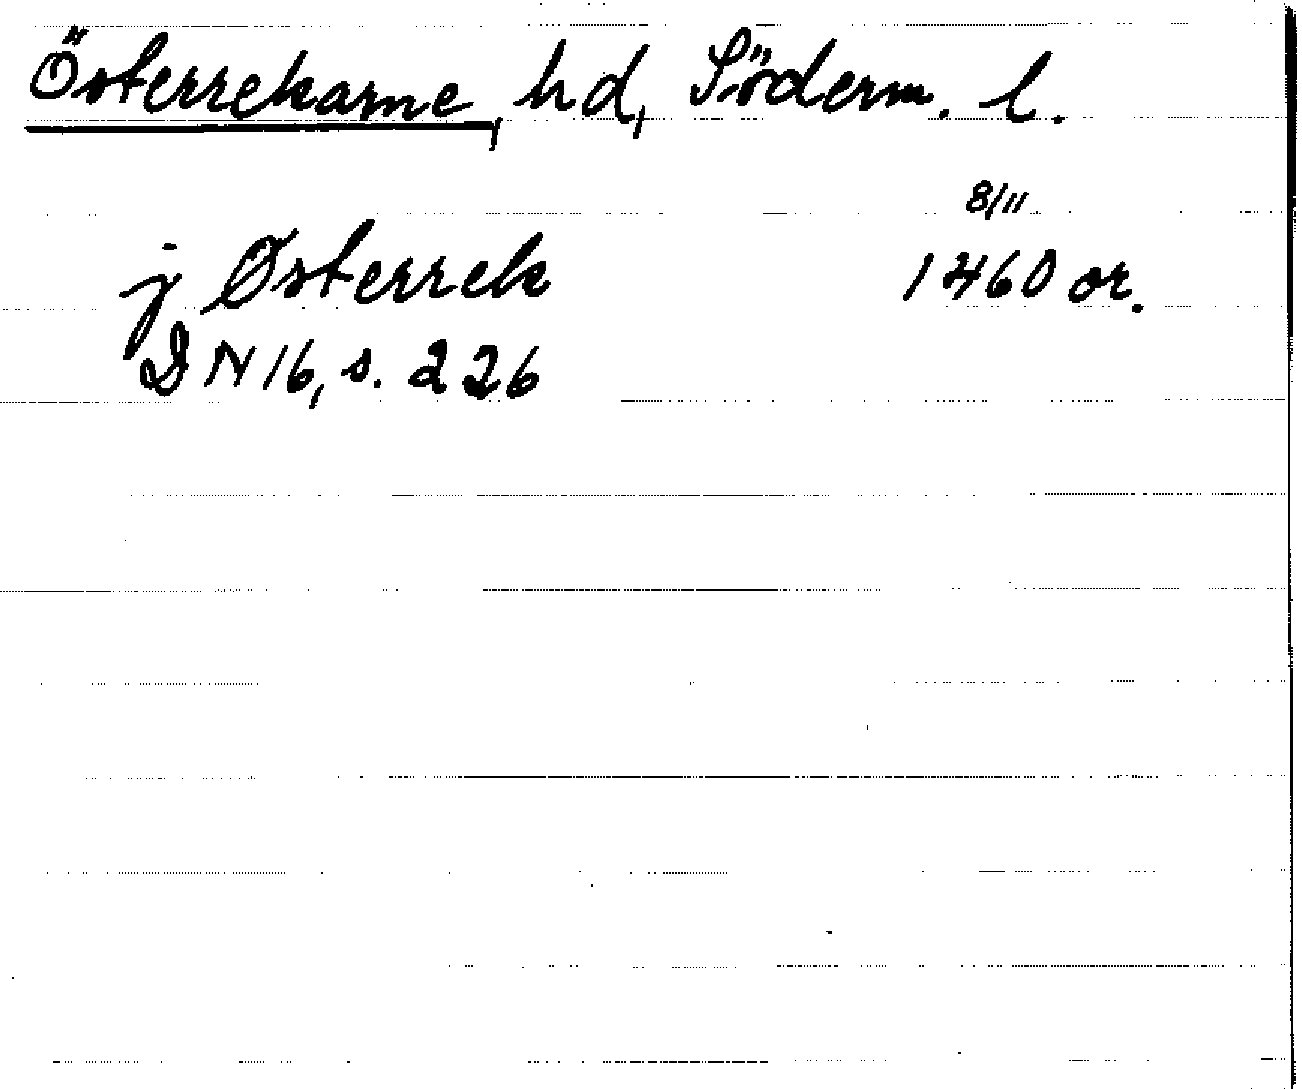 Österrekarne, hd, Söderm. l.
8/11
j Østerrek 1460 or.
DN 16, s. 226